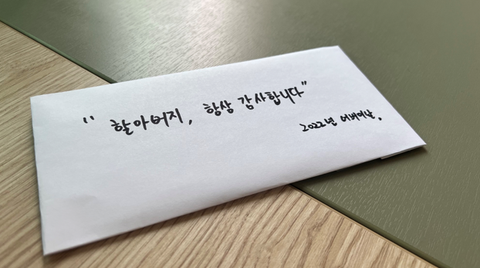 " 할아버지, 항상 감사합니다"
2022년 어버이날.